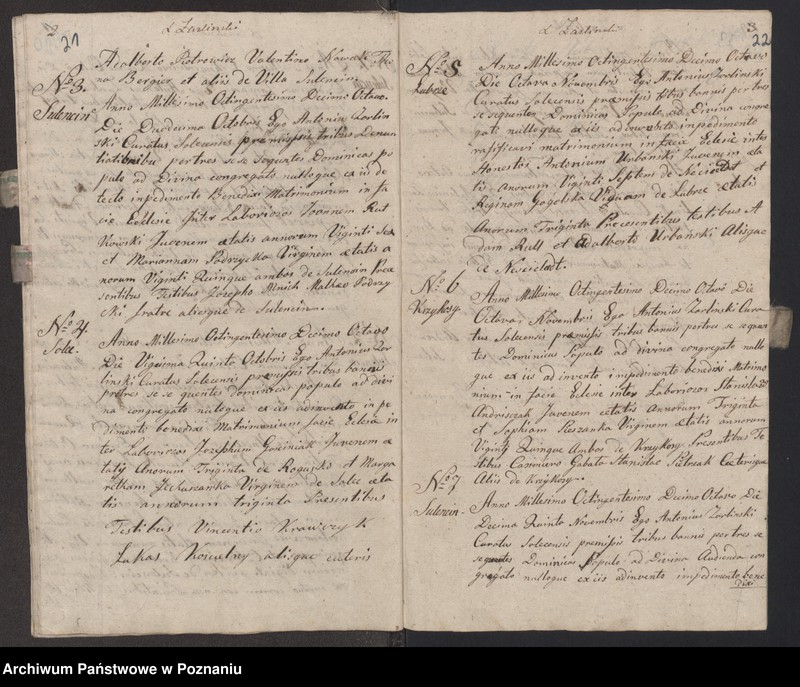 21
Adalberto Piotrowicz Valentino Nowack Tho
na Bergier et aliis de Villa Sulencin.
No 3.
Sulencin
Anno Millesimo Octingentesimo Decimo Octavo.
Die Duodecima Octobris Ego Antonius Zarlin
ski Curatus Solecensis premissis tribus Denun
tiationibus per tres se se sequentes Dominicas po
pulo ad Divina congregato nulloque ex iis de
tecto inpedimento Benedixi Matrimonium in fa
cie Eclesie Inter Laboriozos Joannem Rut
kowski Juvenem etatis annorum Viginti Sex
et Mariannam Podrzycka Virginem etatis a
norum Viginti Quinque ambos de Sulencin Prea
sentibus Testibus Jozepho Mnich Matheo Podrzy
cki fratre aliisque de Sulencin.
No 4.
Solec.
Anno Millesimo Octingentesimo Decimo Octavo
Die Vigesima Quinta Octobris Ego Antonius Zar
linski Curatus Solecensis premissis tribus bannis
pertres se se quentes dominicas populo ad divi
na congregato nulloque ex iis adinvento in pe
dimento benedixi Matrimonium facie Eclesie in
ter Laboriozos Jozephum Goziniak Juvenem e
tatis Anorum Triginta de Rogusko et Marga
retham Virginem de Solec eta
tis annorum triginta Presentibus
Testibus Vincentio Krawczyk
Lukas Kowelny alisque ceteris
22
No 5
Lubrze
Anno Millesimo Octingentesimo Decimo Octavo
Die Octava Novembris Ego Antonius Zarlinski
Curatus Solecensis premissis tribus bannis per tres
se sequentes Dominicas Populo ad Divina congre
gati nulloque ex iis adinvento impedimento
ratificavi matrimonium in facie Eclesie inter
Honestos Antonium Urbański Juvenem eta
tis Anorum Viginti Septem de et
Reginam Gogolska Viduam de Lubrze etatis
Anorum Triginta Presentibus testibus A
dam Rull et Adalberto Urbański Alisque
de
No 6
Krzykosy
Anno Millesimo Octingentesimo Decimo Octavo Die
Octava Novembris Ego Antonius Zarlinski Cura
tus Solecensis premissis tribus bannis pertres se sequen
tes Dominicas Populo ad divina congregato nullo
que ex iis ad invento impedimento benedixi Matrimo
nium in facie Eclesie inter Laboriozos Stanislaum
Andrzczak Juvenem etatis Annorum Triginta
et Sophiam Reszanka Virginem etatis annorum
Viginti Quinque Ambos de Krzykosy Presentibus Te
stibus Casimiero Gabala Stanislao Pietrzak Ceterisque
Aliis de Krzykosy
No 7
Sulencin.
Anno Millesimo Octingentesimo Decimo Octavo Die
Decima Quinta Novembris Ego Antonius Zarlinski
Curatus Solecensis premissis tribus bannis per tres se
sequentes Dominicas Populo ad Divina Audienda con
gregato nulloque ex iis adinvento impedimento bene
dixi
Archiwum Państwowe w Poznaniu